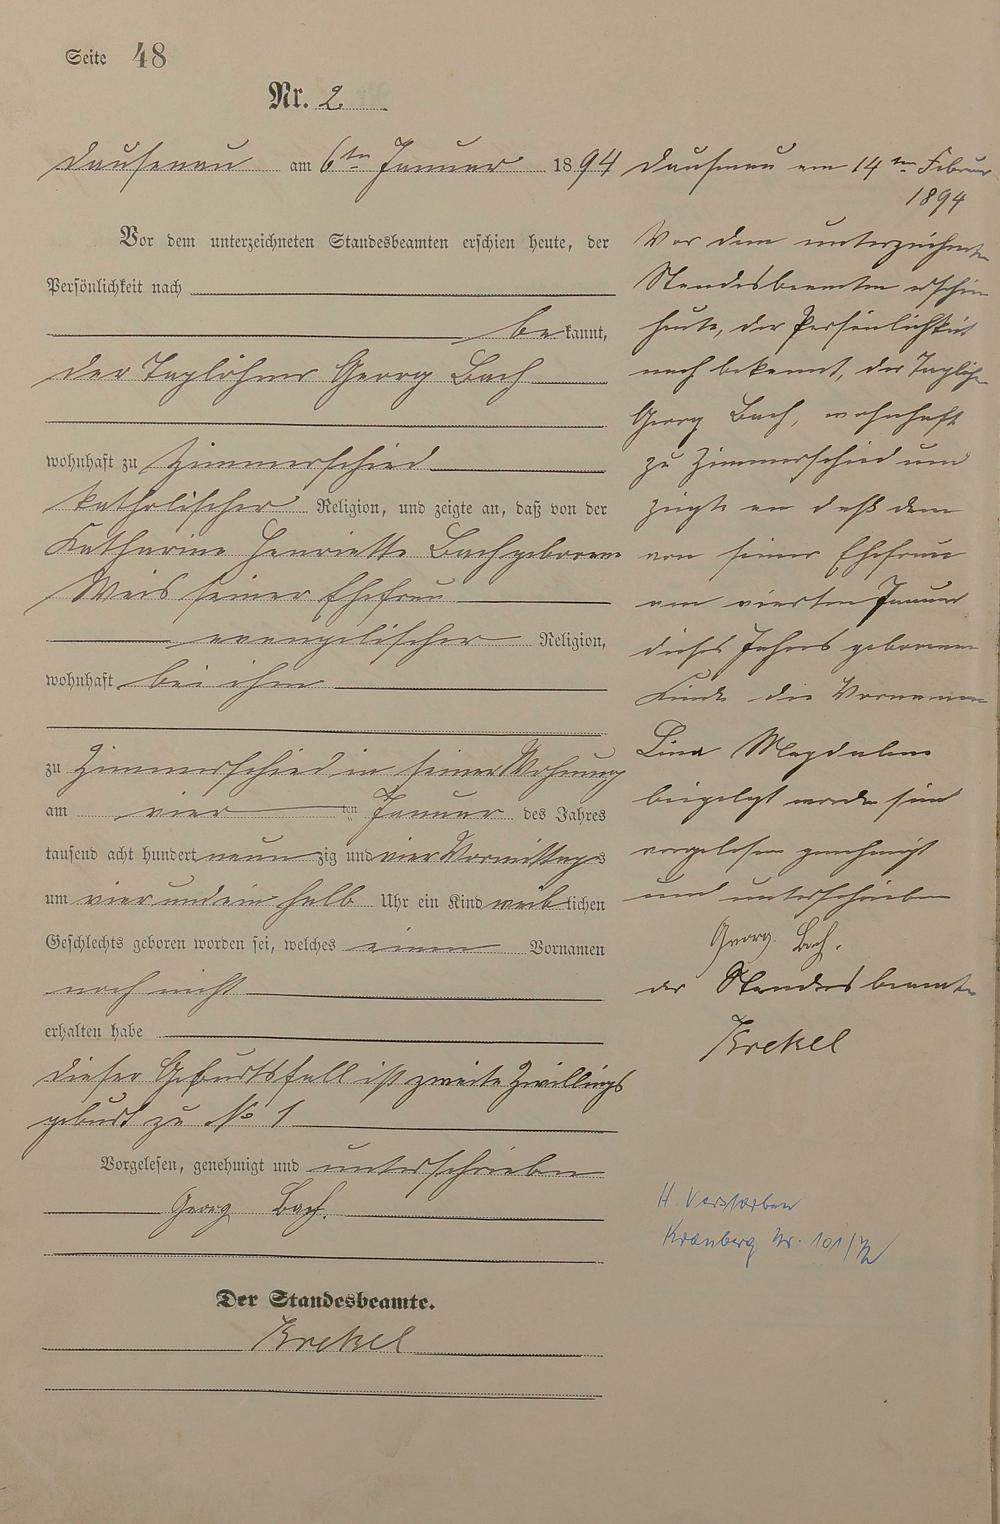 Seite 48
Nr. 2.
Dausenau am 6ten Januar 1894
Vor dem unterzeichneten Standesbeamten erschien heute, der
Persönlichkeit nach
bekannt,
der Taglöhner Georg Bach
wohnhaft zu Zimmerschied
katholischer Religion, und zeigte an, daß von der
Katharine Henriette Bach geborene
Weis seiner Ehefrau
evangelischer Religion,
wohnhaft bei ihm
zu Zimmerschied in seiner Wohnung
am vier ten Januar des Jahres
tausend acht hundert neunzig und vier Vormittags
um vier und ein halb Uhr ein Kind weiblichen
Geschlechts geboren worden sei, welches einen Vornamen
noch nicht
erhalten habe
Dieser Geburtsfall ist zweite Zwillings
geburt zu No 1
Vorgelesen, genehmigt und unterschrieben
Georg Bach.
Der Standesbeamte.
Krekel
Dausenau am 14ten Februar
1894
Vor dem unterzeichneten
Standesbeamten erschien
heute, der Persönlichkeit
nach bekannt, der Taglöhner
Georg Bach, wohnhaft
zu Zimmerschied und
zeigte an daß dem
von seiner Ehefrau
am vierten Januar
dieses Jahres geborenen
Kinde die Vornamen
Lina Magdalene
beigelegt worden sind
vorgelesen genehmigt
und unterschrieben
Georg Bach.
der Standesbeamte
Krekel
H. Verstorben
Kronberg Nr. 101/72